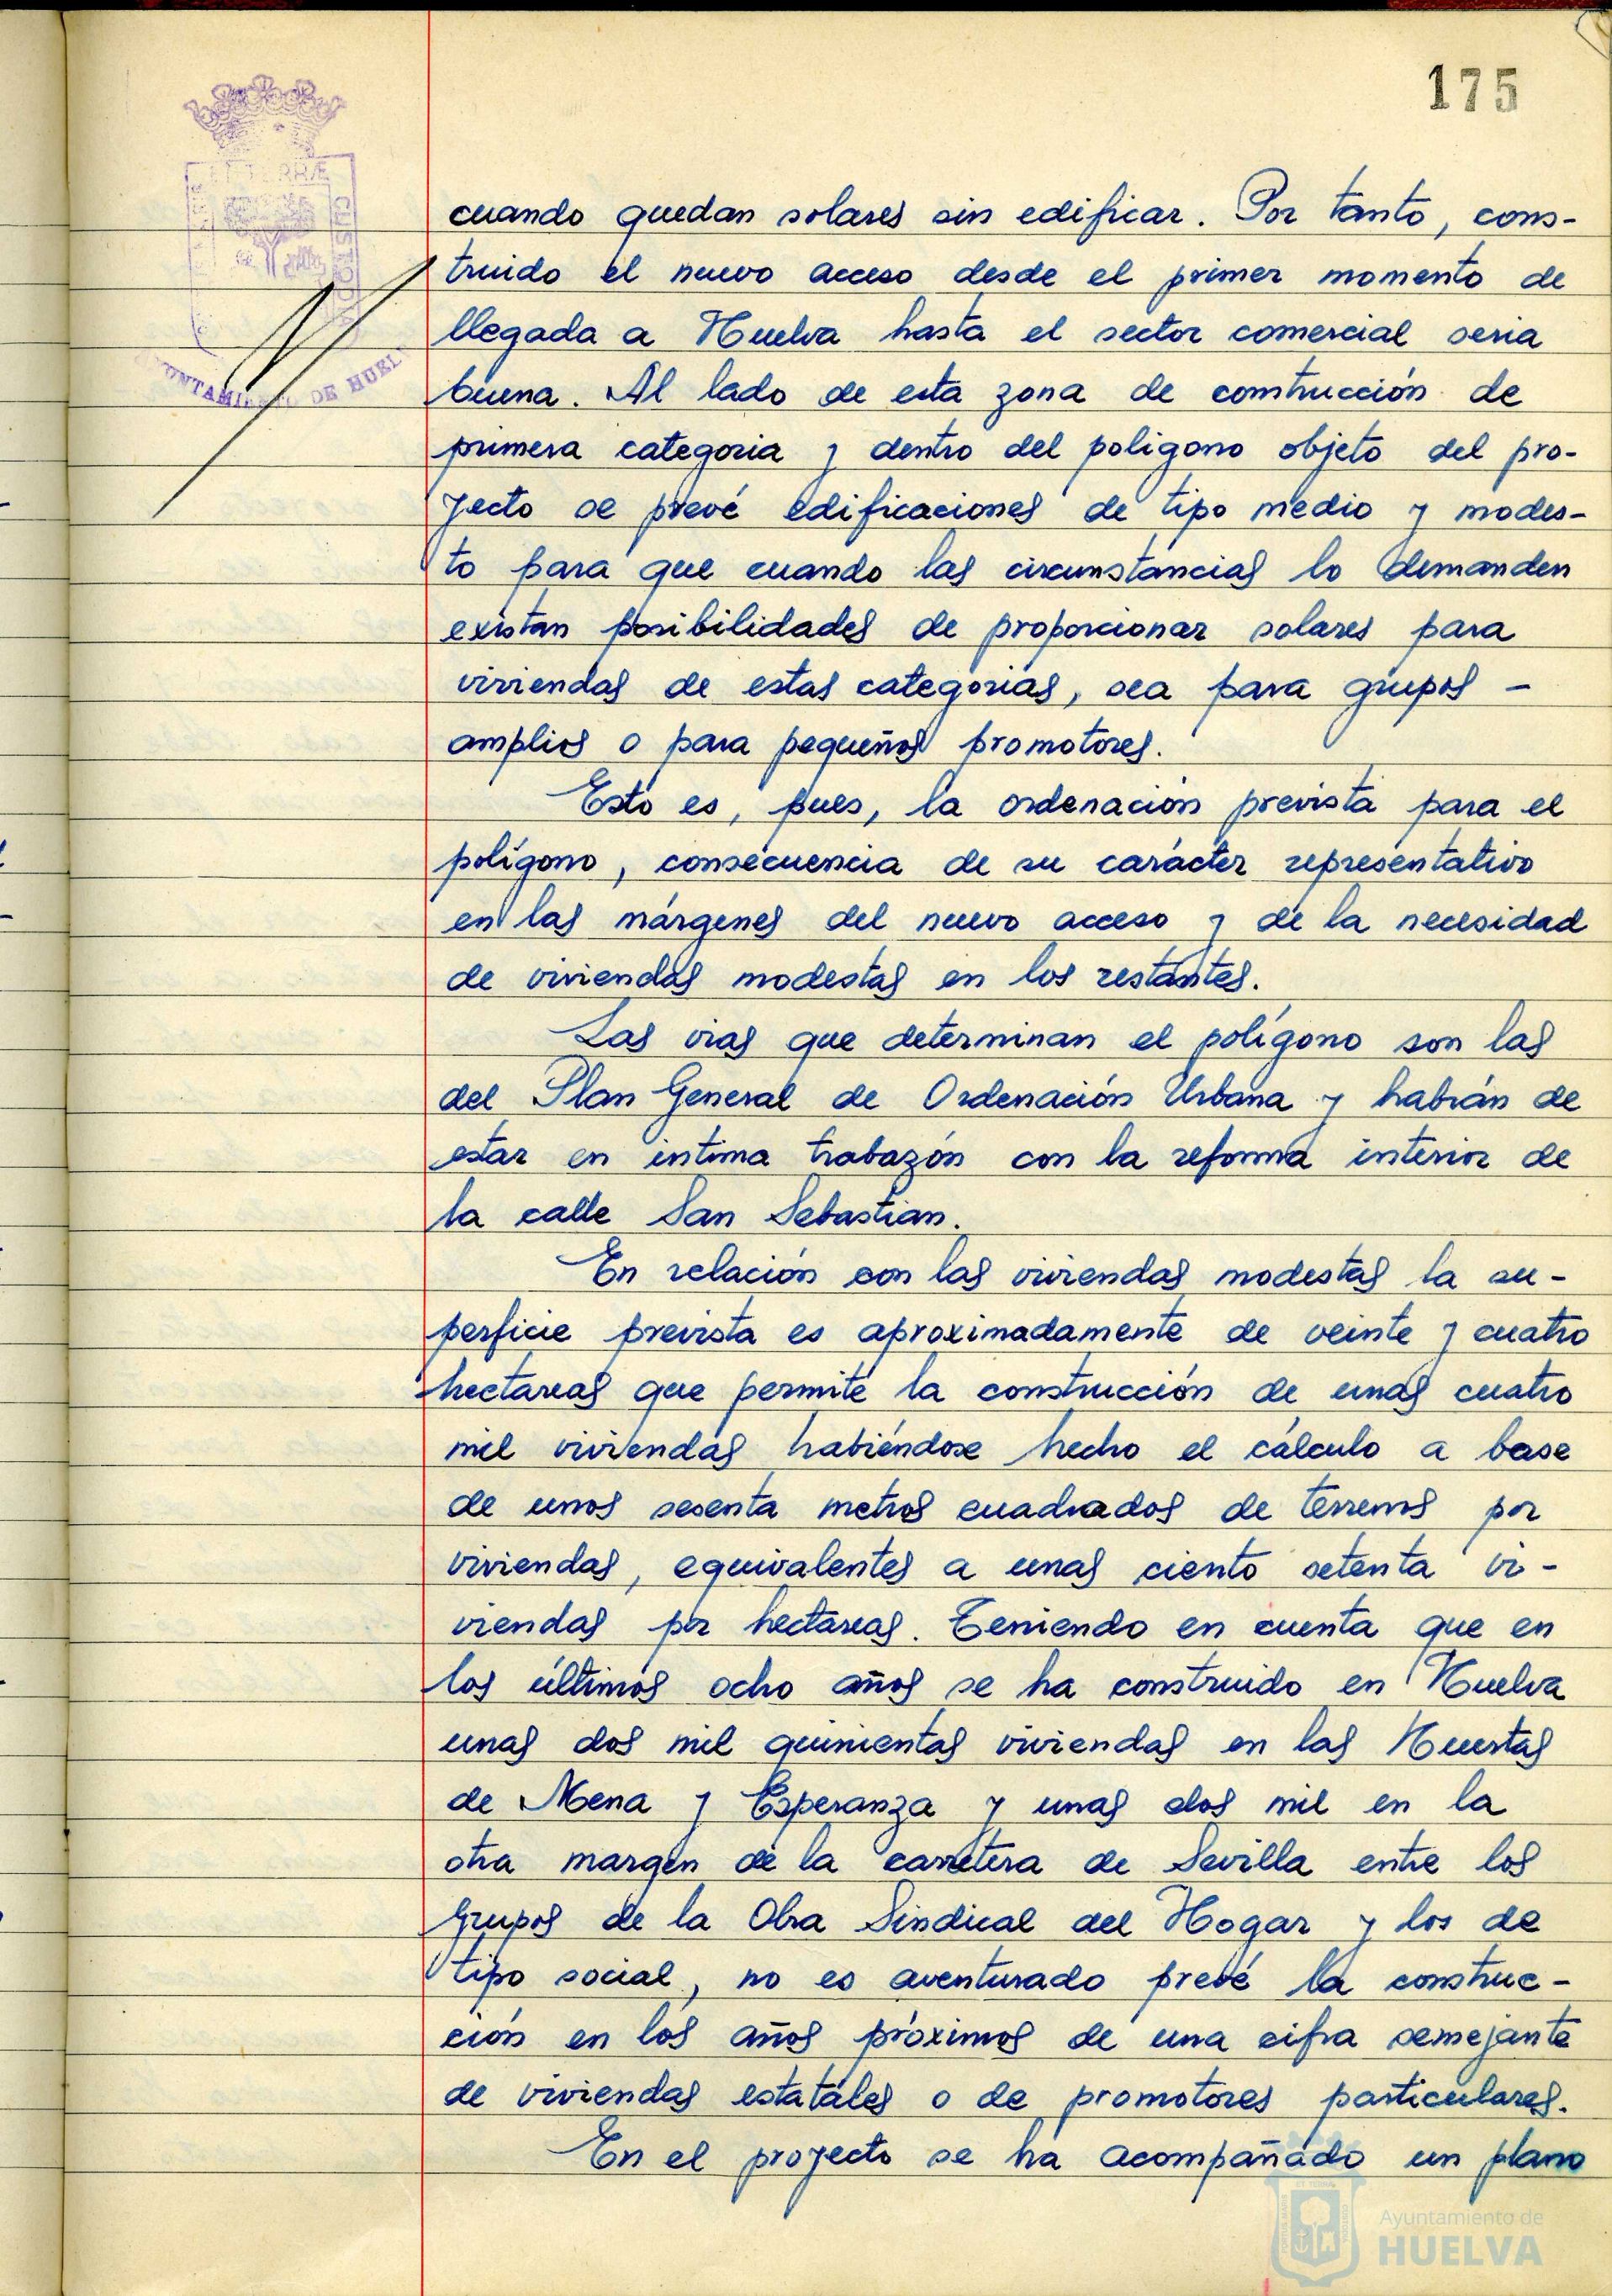 175
TERRÆ
CUSTODIA
AYUNTAMIENTO DE HUELVA
cuando quedan solares sin edificar. Por tanto, cons-
truido el nuevo acceso desde el primer momento de
llegada a Huelva hasta el sector comercial seria
buena. Al lado de esta zona de construcción de
primera categoria y dentro del poligono objeto del pro-
yecto se prevé edificaciones de tipo medio y modes-
to para que cuando las circunstancias lo demanden
existan posibilidades de proporcionar solares para
viviendas de estas categorias, sea para grupos -
amplios o para pequeños promotores.
Esto es, pues, la ordenación prevista para el
polígono, consecuencia de su carácter representativo
en las márgenes del nuevo acceso y de la necesidad
de viviendas modestas en los restantes.
Las vias que determinan el polígono son las
del Plan General de Ordenación Urbana y habrán de
estar en intima trabazón con la reforma interior de
la calle San Sebastian.
En relación con las viviendas modestas la su-
perficie prevista es aproximadamente de veinte y cuatro
hectareas que permite la construcción de unas cuatro
mil viviendas habiéndose hecho el cálculo a base
de unos sesenta metros cuadrados de terrenos por
viviendas, equivalentes a unas ciento setenta vi-
viendas por hectareas. Teniendo en cuenta que en
los últimos ocho años se ha construido en Huelva
unas dos mil quinientas viviendas en las Huertas
de Mena y Esperanza y unas dos mil en la
otra margen de la carretera de Sevilla entre los
Grupos de la Obra Sindical del Hogar y los de
tipo social, no es aventurado prevé la construc-
ción en los años próximos de una cifra semejante
de viviendas estatales o de promotores particulares.
En el proyecto se ha acompañado un plano
Ayuntamiento de
HUELVA